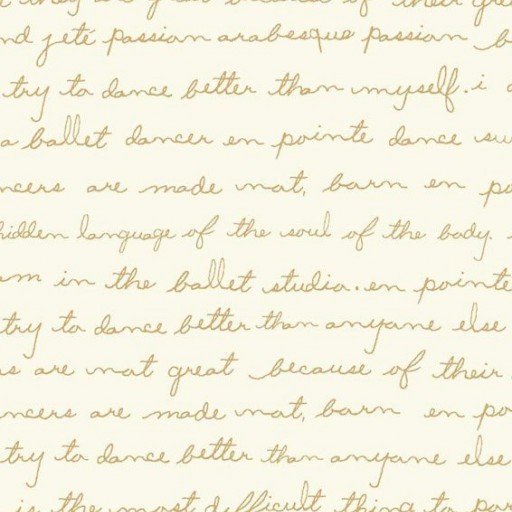 they are great because of their gre
nd jeté passion arabesque passion b
try to dance better than myself. i d
a ballet dancer en pointe dance su
ncers are made not, born en po
hidden language of the soul of the body.
om in the ballet studio. en pointe
try to dance better than anyone else
s are not great because of their
ncers are made not, born en po
try to dance better than anyone else
is the most difficult thing to por